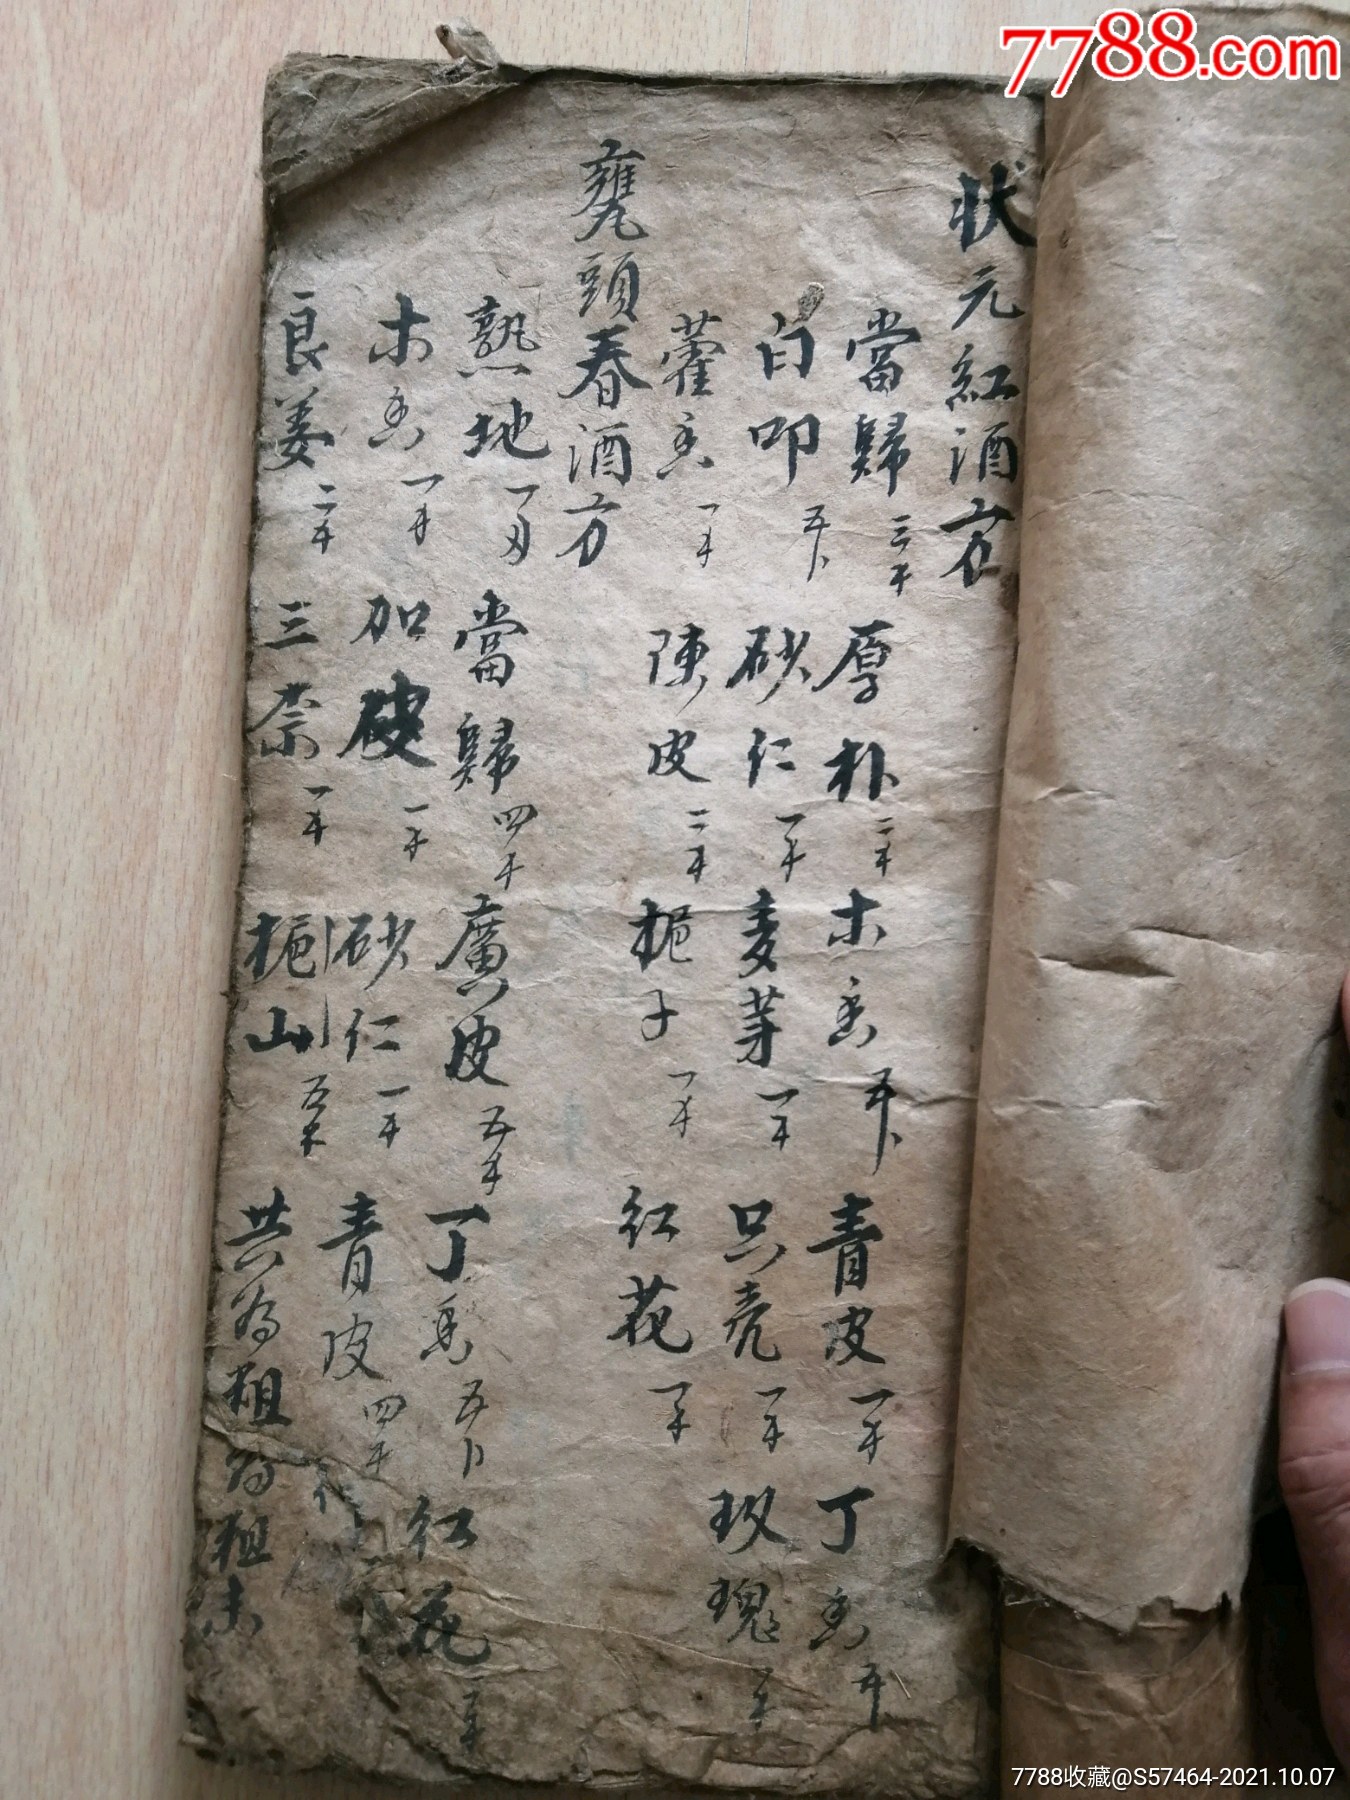 7788.com
状元紅酒方
當歸 三千 厚朴 二千 木香 五卜 青皮 一千 丁香 五卜
白叩 五卜 砂仁 一千 麦芽 一千 只壳 一千 玫瑰 一千
藿香 一千 陳皮 二千 梔子 一千 红花 一千
甕頭春酒方
熟地 一刄 當歸 四千 廣皮 五千 丁香 五卜 红花 一千
木香 一千 加皮 一千 砂仁 一千 青皮 四千
良姜 二千 三柰 一千 梔山 五 共為粗為粗末
7788收藏@S57464-2021.10.07